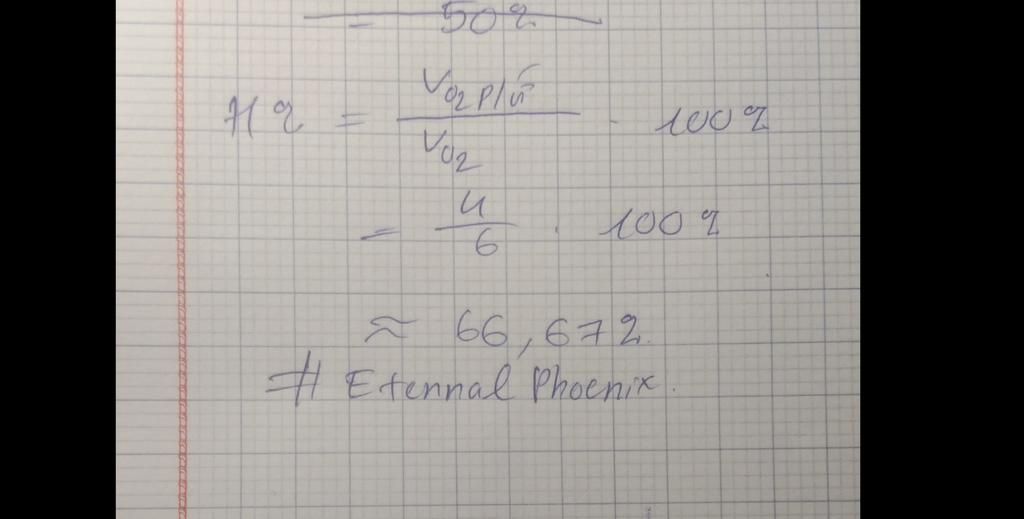 = 50%
H% = V_{O_2 P/Ư} / V_{O_2} . 100%
= 4/6 . 100%
≈ 66,67%
# Eternal Phoenix.